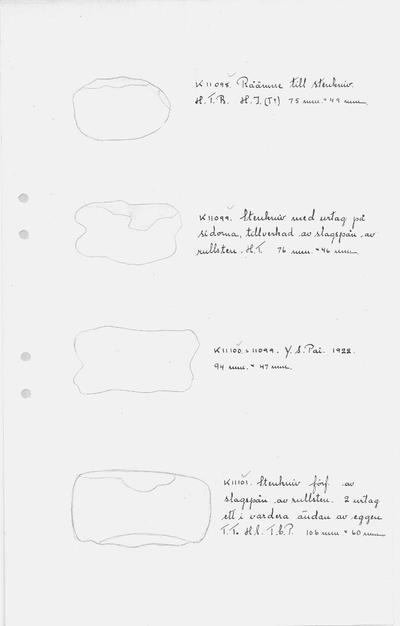 K11098. Råämne till stenkniv.
H.T.B. H.J.(T?) 75 mm. × 49 mm.
K11099. Stenkniv med urtag på
sidorna, tillverkad av slagspån av
rullsten. H.T. 76 mm × 46 mm.
K11100. = 11099. Y.S.Pai. 1922.
94 mm. × 47 mm.
K11101. Stenkniv förf. av
slagspån av rullsten. 2 urtag
ett i vardera ändan av eggen
T.T. H.S. 106 mm × 60 mm